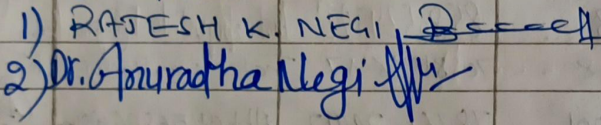 1) RAJESH K. NEGI,
2) Dr. Anuradha Negi